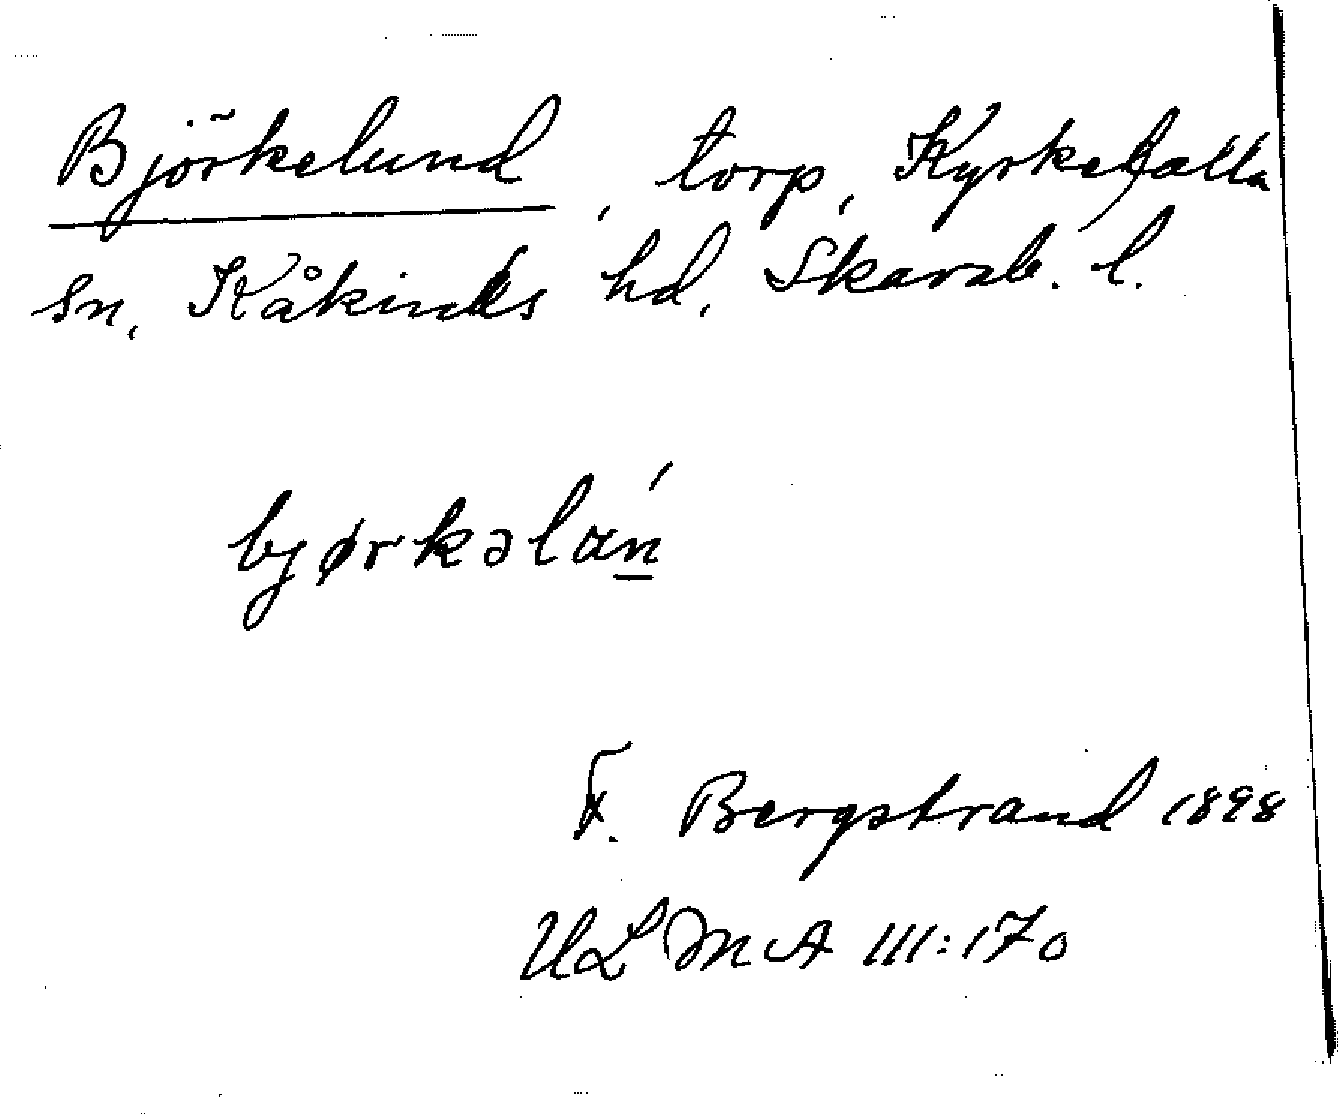 Björkelund, torp, Kyrkefalla
sn, Kåkinds hd, Skarab. l.
bjørkəlɑń̲
F. Bergstrand 1898
ULMA III:170